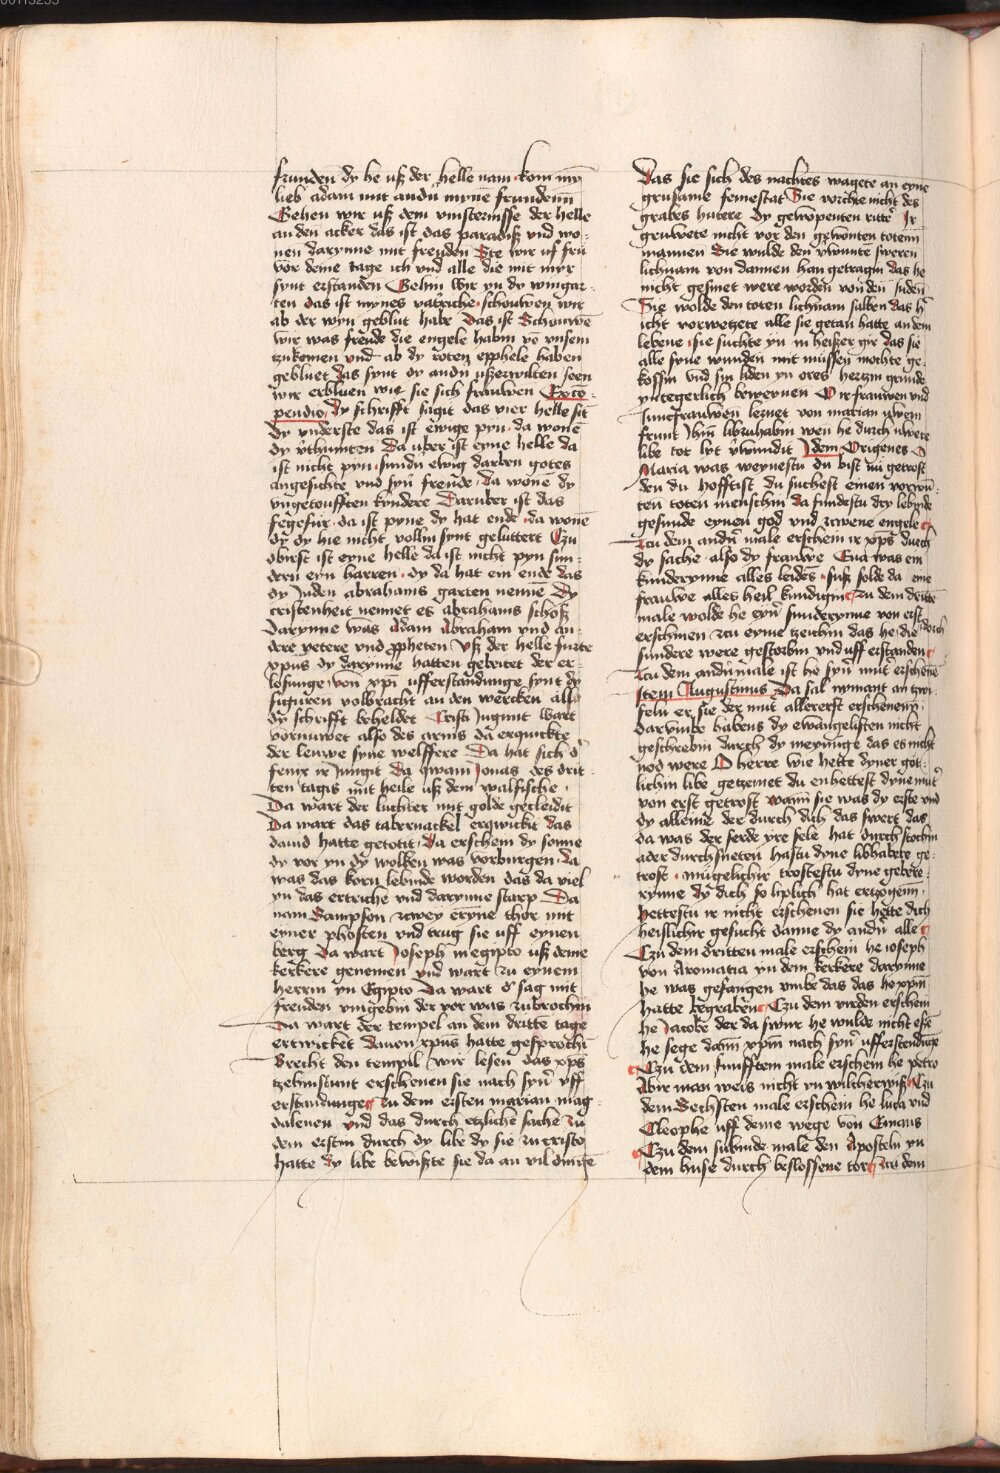 00113255
frunden dy he uß der helle nam · kom my
lieb adam mit andn myne frundenn
Gehen wir uß dem vinsternisse der helle
an den acker das ist das paradiß vnd wo
nen darynne mit freuden Ste wir uf fru
vor deme tage ich vnd alle die mit myr
synt erstanden Gehin wir yn dy wingar
ten das ist mynes vatir riche · schouwen wir
ab der wyn geblut habe Das ist Schouwe
wir was freude die engele habin vo vnsem
tzukomen vnd ab dy roten epphele haben
gebluet das synt dy andn ußerwilten seen
wir erbluen wie sie sich frauwen Ex co
pendio Dy schrifft sagit das vier helle sit
Dy vnderste das ist ewige pyn · da wone
dy vthumten Da uber ist eyne helle da
ist nicht pyn · sundn ewig darben gotes
angesichte vnd syn freude · da wone dy
vngetoufften kyndere Daruber ist das
fegefur · da ist pyne dy hat ende · da wone
dy dy hie nicht vollin synt geluttert Czu
obirst ist eyne helle da ist nicht pyn sun
dern eyn harren · dy da hat ein ende das
dy Juden abrahams garten nenne Dy
cristenheit nennet es abrahams schoß
Darynne was Adam Abraham vnd an
dere vetere vnd ppheten Uß der helle furte
xpus dy darynne hatten gebeitet der er
losunge · von xpi ufferstandunge synt dy
figuren volbracht an den wercken alß
dy schrifft beheldet Cristi Jugunt wart
vornuwet also des arnis da erquickte
der leuwe syne welffere Da hat sich d
fenix ir Jungit Da qwam Jonas des drit
ten tagis mit heile uß dem walfische ·
Da wart der luchter mit golde gecleidit
Da wart das tabernackel erqwickit das
dauid hatte getotit · Da erschein dy sonne
dy vor yn dy wolken was vorburgen · da
was das korn lebinde worden das da viel
yn das ertriche vnd darynne starp Da
nam Sampson zwey eryne thor mit
eyner phosten vnd trug sie uff eynen
berg Da wart Joseph in egipto uß deme
kerkere genomen vnd wart zu eynem
herrin yn Egipto Da wart d sag mit
freuden vmgebin der vor was zubrochin
Da wart der tempel an dem dritte tage
ertwicket dauon xpus hatte gesproche
Brecht den tempil wir lesen das xps
tzehinstunt erschenen sie nach syn uff
erstandunge Zu dem ersten marian mag
dalenen vnd das durch etzliche sache Zu
dem erstin durch dy libe dy sie zu cristo
hatte dy libe bewißte sie da an vil dinge
Das sie sich des nachtes wagete an eyne
grusame femestat Sie vorchte nicht des
grabes hutere dy gewopenten ritt Ir
gruwete nicht vor den gewonten totenn
mannen Sie wulde den vwunte sweren
lichnam von dannen han getragin das he
nicht gesmet were worden von den Juden
Sie wolde den toten lichnam salben das h
icht vorwetzete alle sie getan hatte an dem
lebene · sie suchte yn in heißer gir das sie
alle syne wunden mit mussen mochte ge
kossin vnd sin liden yn ores hertzin grunde
ynegerlich beweynen O ir frauwen vnd
Juncfrauwen lernet von marian uwern
frunt Jhm libzuhabin wen he durch uwere
libe tot lyt vwundit Idem Origenes O
Maria was weynestu du bist nu getrost
den du hofftist du suchest einen vorwu
ten toten menschin da fundestu dry lebinde
gesunde eynen god vnd zwene engele
Zu dem andn male erschein ir xps durch
dy sache · also dy frauwe Eua was ein
kunderynne alles leides · suß solde da eine
frauwe alles heil kundigin Zu dem dritte
male wolde he eyn sunderynne von erst
erschinen zu eyme tzeichin das he die durch
sundere were gestorbin vnd uff erstanden
Zu dem andn male ist he syn mut erschene
Item Augustinus Da sal nymant an twi
feln er sie der mut allererst erschenen
darumbe habens dy ewangelisten nicht
geschrebin durch dy meynunge das es nicht
nod were O herre wie hette dyner got
lichin libe getzemet du enhettest dyne mut
von erst getrost wann sie was dy erste vnd
dy alleine der durch dich das swert das
da was der ferde yre sele hat durch stochin
ader durchsneten hastu dyne libhabere ge
trost · mugelichir trostestu dyne gebere
rynne dy dich so liplich hat ertzogenn ·
hettestu ir nicht erschenen sie hette dich
heislichir gesucht danne dy andn alle
Czu dem dritten male erschein he ioseph
von Aromatia yn dem kerkere darynne
he was gefangen vmbe das das he xpm
hatte begraben Czu dem virden erschein
he Jacobe der da swur he wulde nicht esse
he sege dann xpm nach syn ufferstendunge
Czu dem funfften male erschein he petro
Abir man weis nicht yn wilcherwiß Czu
dem Sechsten male erschein he luca vnd
Cleophe uff deme wege von Emaus
Czu dem subinde male den Aposteln yn
dem huse durch beslossene tor Zu dem